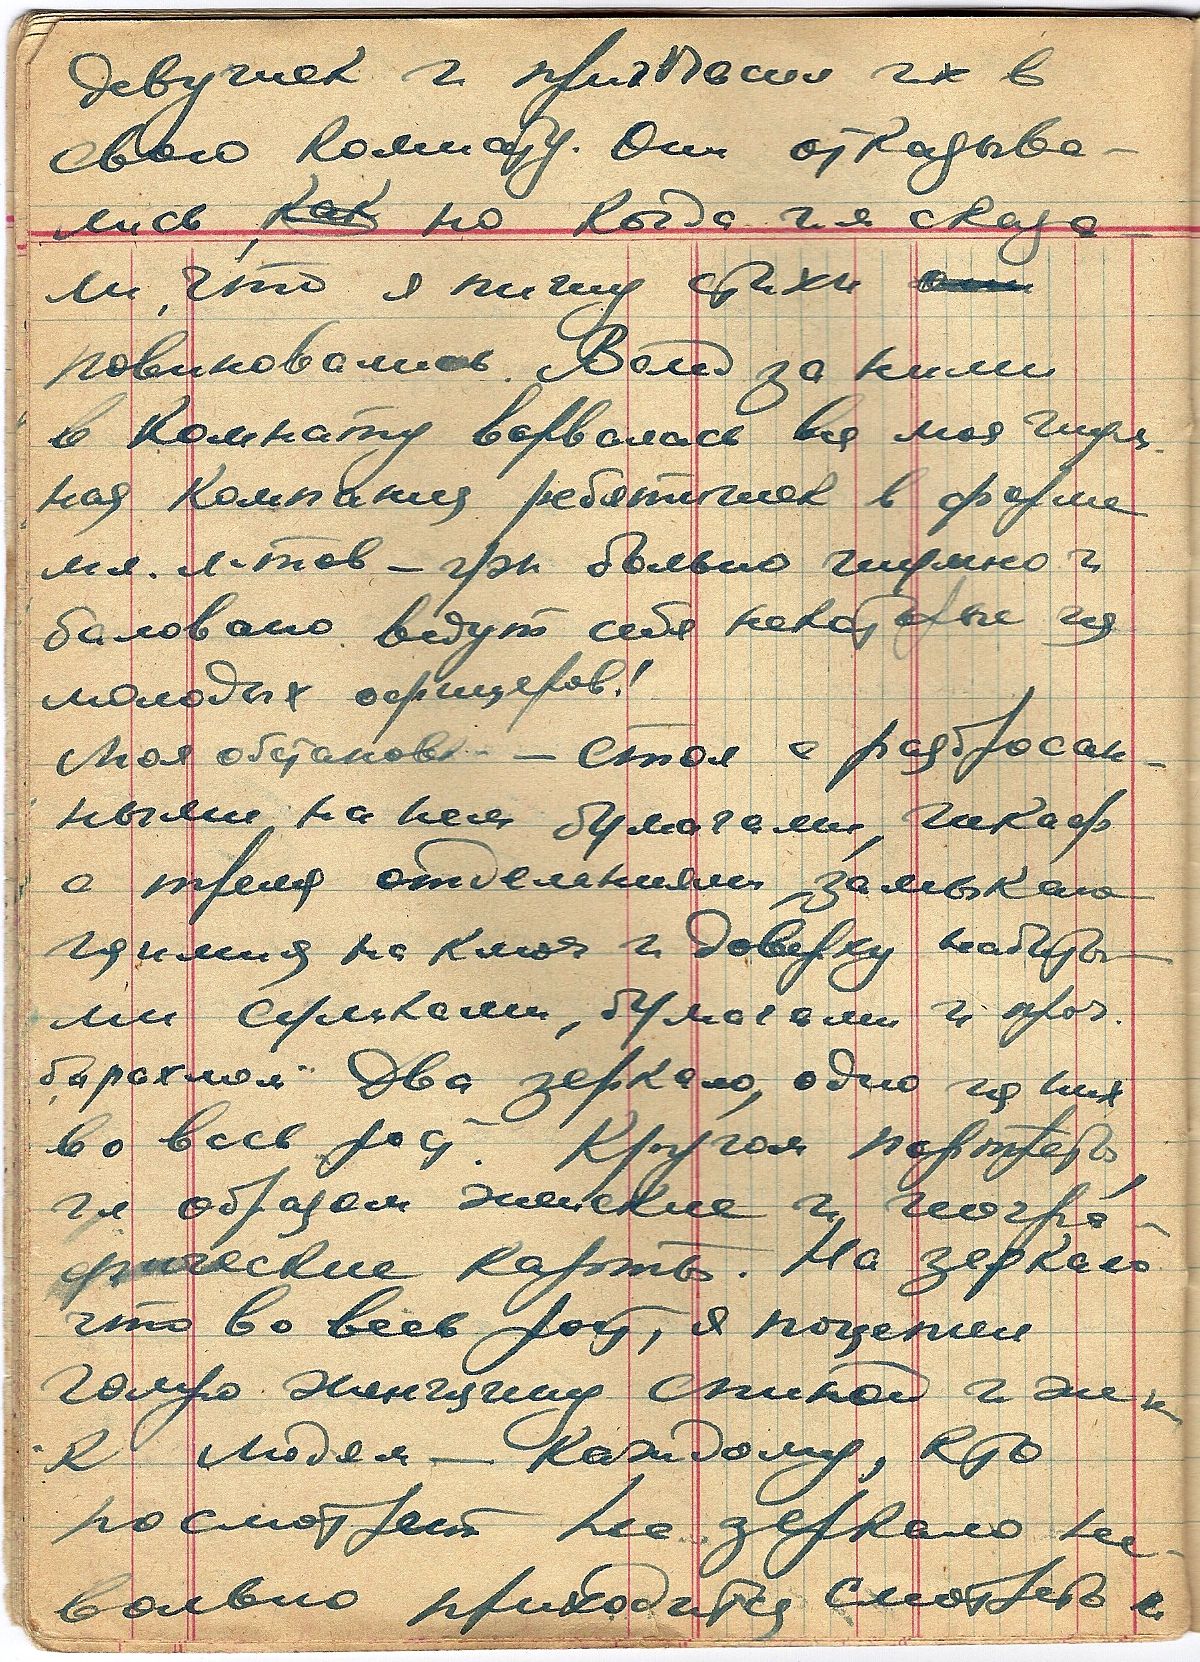 девушек и пригласил их в
свою комнату. Они отказыва-
лись, как но когда им сказа-
ли, что я пишу стихи они
повиновались. Вслед за ними
в комнату ворвалась вся моя шум-
ная компания ребятишек в форме
мл. л-тов – уж больно шумно и
баловано ведут себя некоторые из
молодых офицеров!
Моя обстановка – стол с разбросан-
ными на нем бумагами, шкаф
с тремя отделениями, замыкаю-
щимися на ключ и доверху набиты-
ми сумками, бумагами и проч.
барахлом. Два зеркала, одно из них
во весь рост. Кругом портреты,
гл. образом женские и геогра-
фические карты. На зеркало
что во весь рост, я поцепил
голую женщину спиной и жи
к людям – каждому, кто
посмотрит на зеркало не-
вольно приходится смотреть и